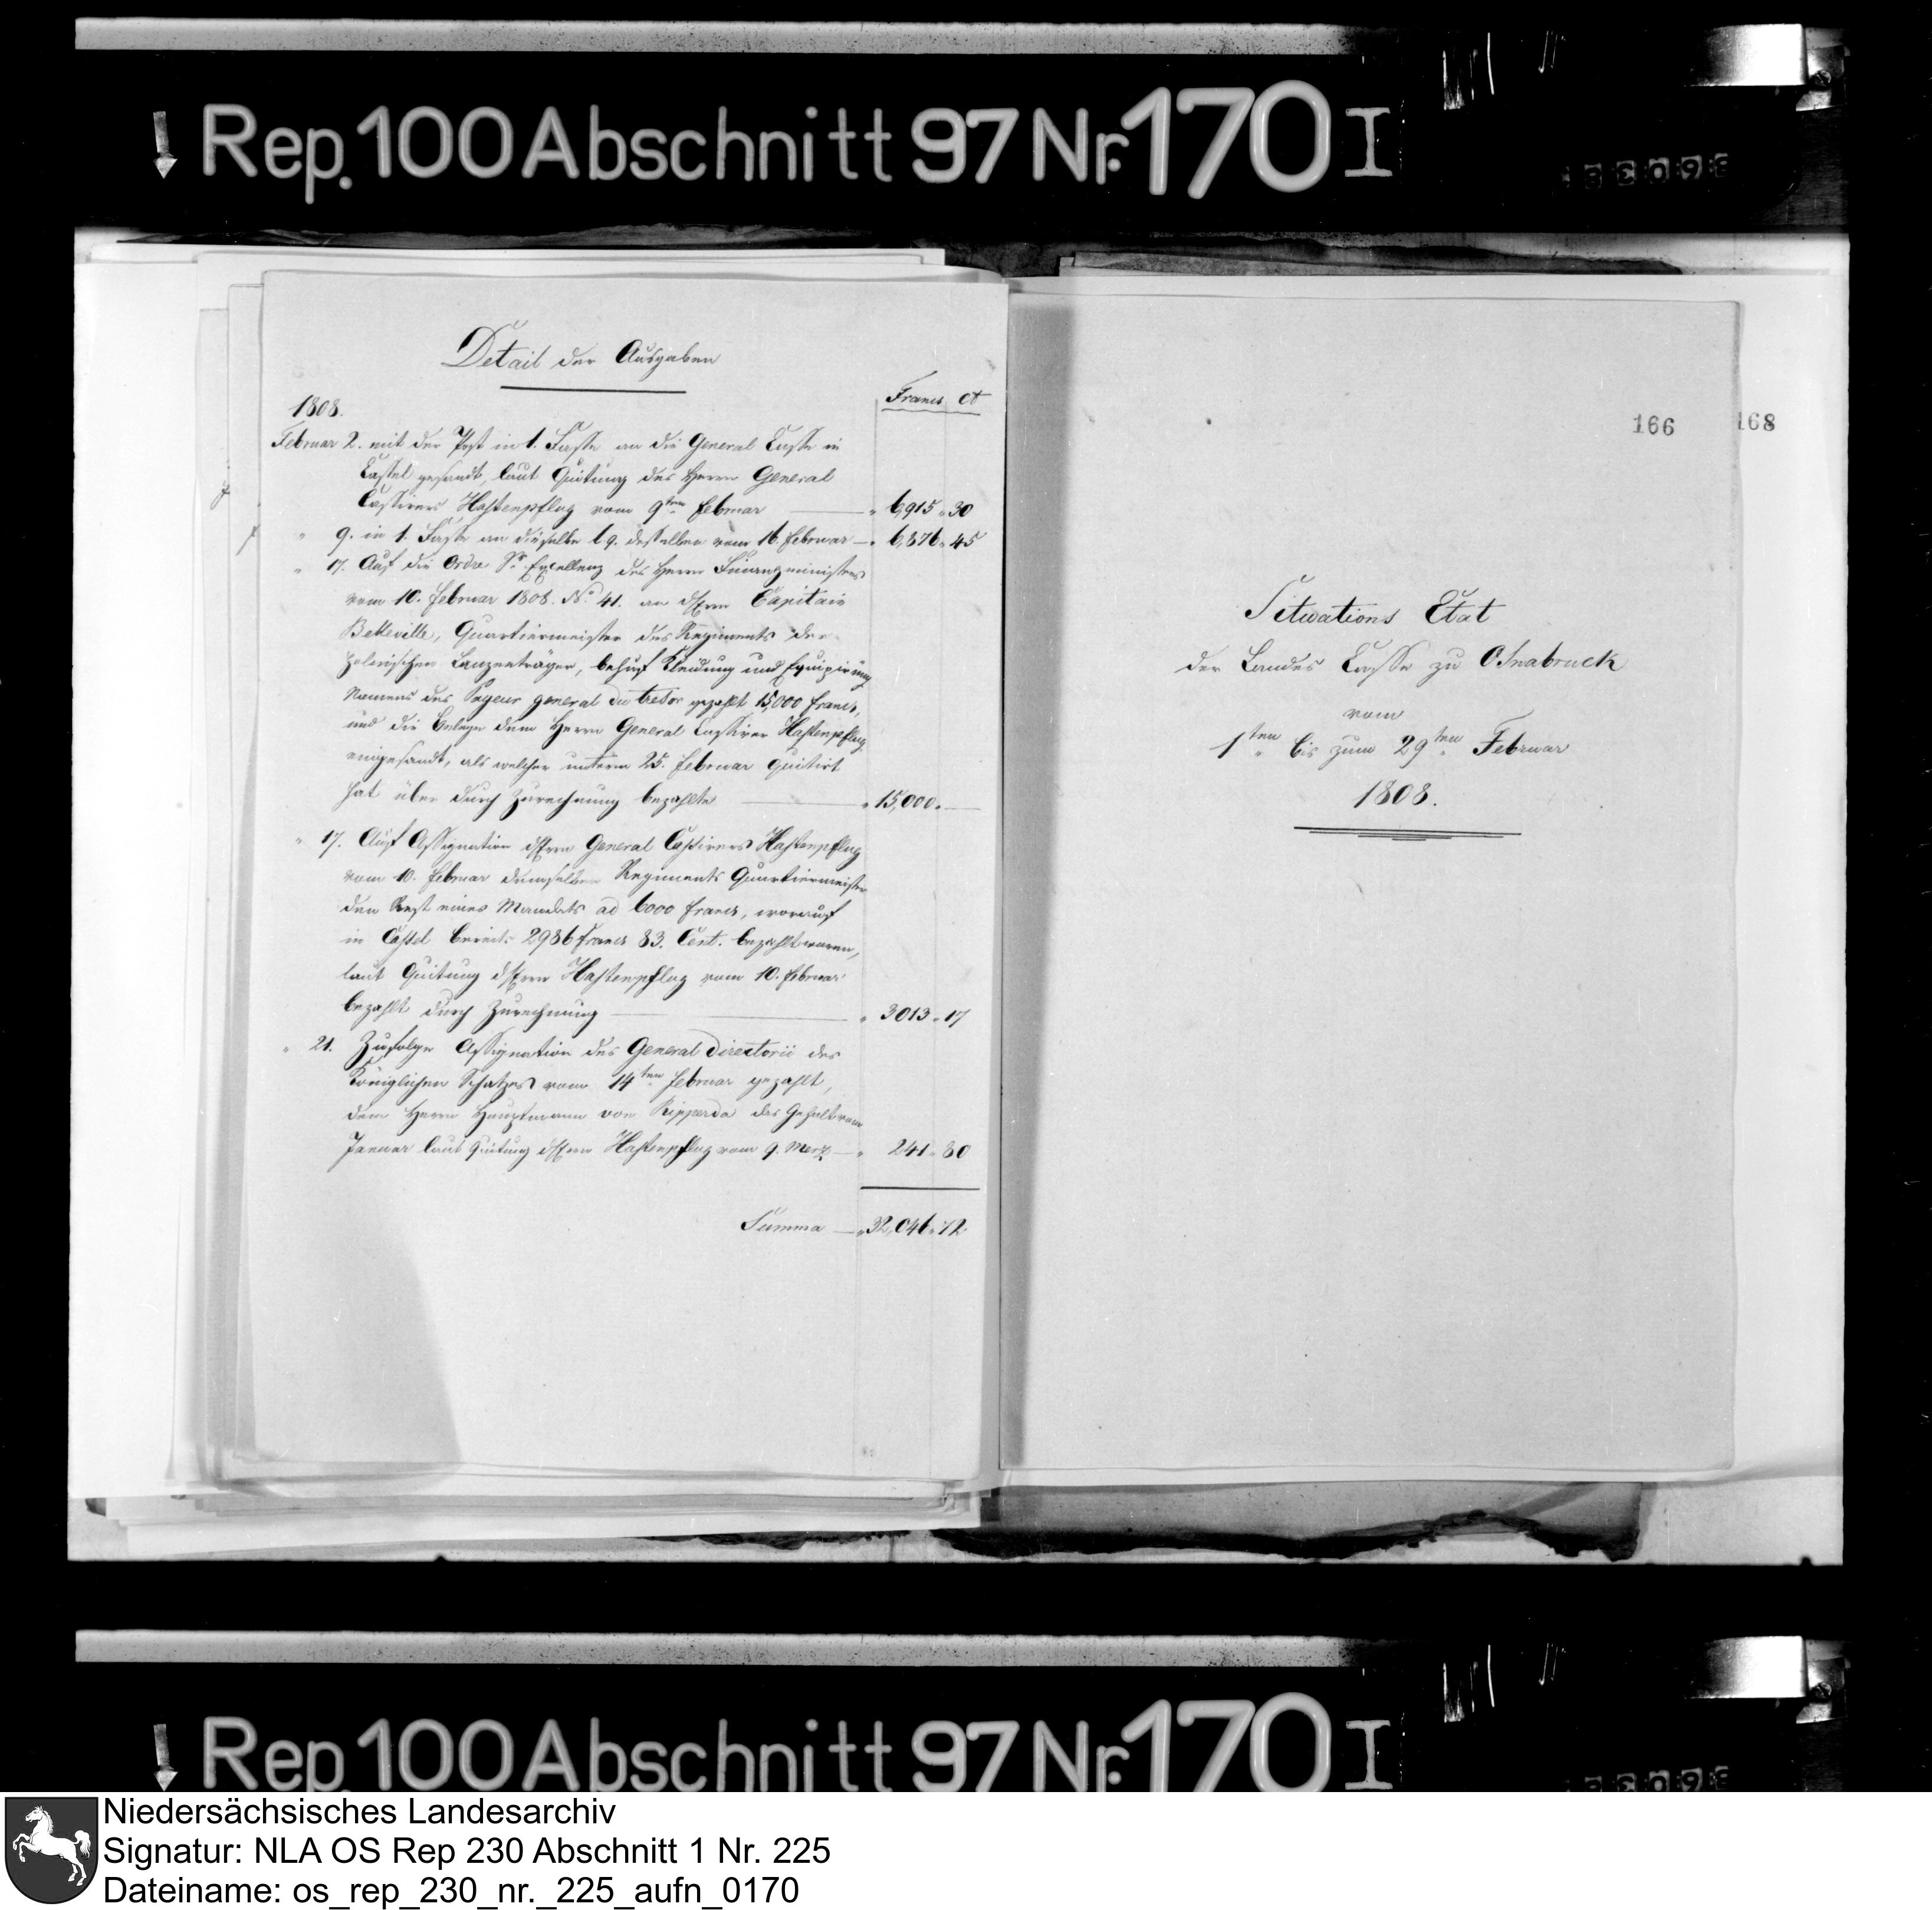 Rep. 100 Abschnitt 97 Nr. 170 I
Detail der Ausgaben
Francs ct
1808.
Februar 2. mit der Post in 1. Fasse an die General Casse in
Cassel gesandt, laut Quitung des Herrn General
Cassirers Hastenpflug vom 9ten Februar — " 6,915 " 30
" 9. in 1. Fasse an dieselbe l. q. desselben vom 16. Februar — " 6,876 " 45
" 17. Auf die Ordre Sr. Excellenz des Herrn Finanzministers
vom 10. Februar 1808. No. 41. an Herrn Capitain
Belleville, Quartiermeister des Regiments der
polnischen Lanzenträger, behuf Kleidung und Equipirung
Namens des Payeur general du tresor gezahlt 15,000 francs,
und die Belege dem Herrn General Cassirer Hastenpflug
eingesandt, als welcher unterm 25. Februar quitirt
hat über durch Zurechnung bezahlte — " 15,000 " —
" 17. Auf Assignation Herrn General Cassirers Hastenpflug
vom 10. Februar demselben Regiments Quartiermeister
den Rest eines Mandats ad 6000 francs, worauf
in Cassel bereits 2986 francs 83. Cent. bezahlt waren,
laut Quitung Herrn Hastenpflug vom 10. Februar
bezahlt durch Zurechnung — " 3013 " 17
" 21. Zufolge Assignation des General directorii des
Königlichen Schatzes vom 14ten Februar gezahlt,
dem Herrn Hauptmann von Ripperda das Gehalt vom
Januar laut Quitung Herrn Hastenpflug vom 9. Merz — " 241 " 80
Summa — " 32,046 " 72
166
168
Situations Etat
der Landes Casse zu Osnabruck
vom
1ten bis zum 29ten Februar
1808.
Rep. 100 Abschnitt 97 Nr. 170 I
Niedersächsisches Landesarchiv
Signatur: NLA OS Rep 230 Abschnitt 1 Nr. 225
Dateiname: os_rep_230_nr._225_aufn_0170